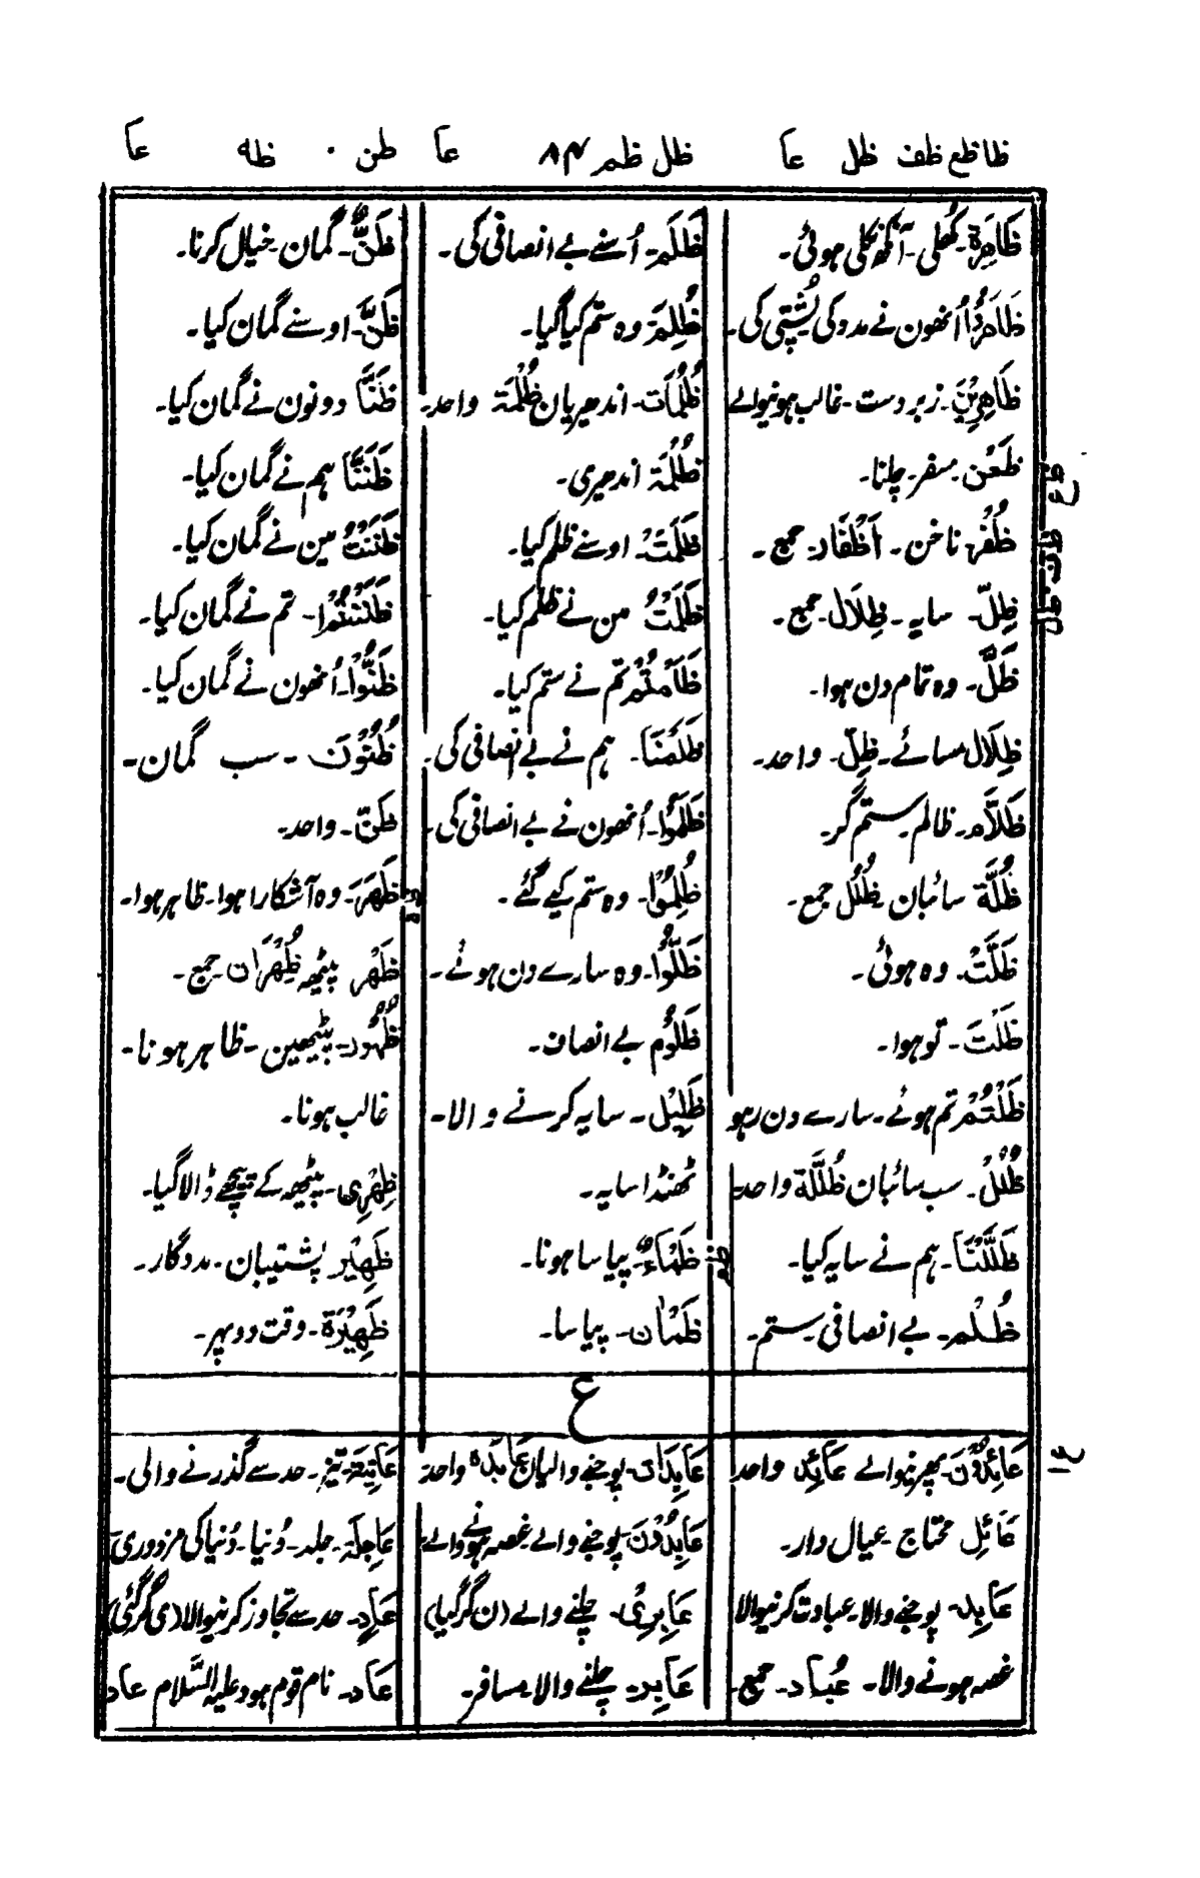 ظا ظع ظف ظل عا ظل ظم ۸۴ عا ظن ظه عا
ظَاهِرَة۔ کُھلی۔ آنکھ نکلی ہوئی۔
ظَاهَرُوْا اُنھون نے مدد کی پُشتی کی۔
ظَاهِرِيْنَ۔ زبردست۔ غالب ہونیوالے
ظَعْن۔ سفر۔ چلنا۔
ظُفُر۔ ناخن۔ اَظْفَار۔ جمع۔
ظِلّ۔ سایہ۔ ظِلَال۔ جمع۔
ظَلَّ۔ وہ تمام دن ہوا۔
ظِلَال سائے۔ ظِلّ۔ واحد۔
ظَلَّام۔ ظالم۔ ستم گر۔
ظُلَّة سائبان۔ ظُلَل جمع۔
ظَلَّتْ۔ وہ ہوئی۔
ظَلْتَ۔ تو ہوا۔
ظَلْتُمْ تم ہوئے۔ سارے دن رہو
ظُلَلٌ۔ سب سائبان ظُلَّة واحد۔
ظَلَّلْنَا۔ ہم نے سایہ کیا۔
ظُلْم۔ بے انصافی۔ ستم۔
ظَلَمَ۔ اُسنے بے انصافی کی۔
ظُلِمَ۔ وہ ستم کیا گیا۔
ظُلُمَات۔ اندھیریان ظُلْمَة واحد۔
ظُلْمَة اندھیری۔
ظَلَمَتْ۔ اوسنے ظلم کیا۔
ظَلَمْتُ من نے ظلم کیا۔
ظَلَمْتُمْ تم نے ستم کیا۔
ظَلَمْنَا۔ ہم نے بے انصافی کی۔
ظَلَمُوْا۔ اُنھون نے بے انصافی کی۔
ظُلِمُوْا۔ وہ ستم کیے گئے۔
ظَلُّوْا۔ وہ سارے دن ہوئے۔
ظَلُوْم بے انصاف۔
ظَلِيْل۔ سایہ کرنے والا۔
ٹھنڈا سایہ۔
ظَمَاءٌ۔ پیاسا ہونا۔
ظَمْاٰن۔ پیاسا۔
ظَنٌّ۔ گمان۔ خیال کرنا۔
ظَنَّ۔ اوسنے گمان کیا۔
ظَنَّا دونون نے گمان کیا۔
ظَنَنَّا ہم نے گمان کیا۔
ظَنَنْتُ مین نے گمان کیا۔
ظَنَنْتُمْ۔ تم نے گمان کیا۔
ظَنُّوْا۔ اُنھون نے گمان کیا۔
ظُنُوْن۔ سب گمان۔
ظَنّ۔ واحد۔
ظَهَرَ۔ وہ آشکارا ہوا۔ ظاہر ہوا۔
ظَهْر پیٹھ ظُهْرَان جمع۔
ظُهُوْر۔ پیٹھین۔ ظاہر ہونا۔
غالب ہونا۔
ظِهْرِی۔ پیٹھ کے پیچھے ڈالا گیا۔
ظَهِيْر پشتیبان۔ مددگار۔
ظَهِيْرَة۔ وقت دوپہر۔
ع
عَائِدُوْنَ۔ پھرنیوالے عَائِد واحد
عَائِل محتاج۔ عیال دار۔
عَابِد۔ پوجنے والا۔ عبادت کرنیوالا
غصہ ہونے والا۔ عُبَّاد۔ جمع۔
عَابِدَات۔ پوجنے والیان عَابِدَة واحد
عَابِدُوْنَ۔ پوجنے والے غصہ ہونے والے۔
عَابِرِی۔ چلنے والے (ن گر گیا)
عَابِر۔ چلنے والا۔ مسافر۔
عَاتِيَة۔ تیز۔ حد سے گذرنے والی۔
عَاجِلَة۔ جلد۔ دُنیا۔ دُنیا کی مزدوری
عَادٍ۔ حد سے تجاوز کرنیوالا (ی گر گئی)
عَاد۔ نام قوم ہود علیہ السَّلام عاد